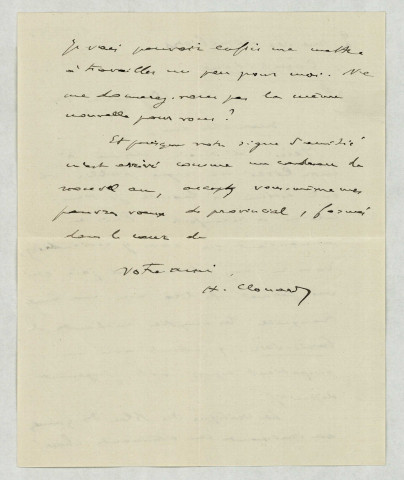 Je vais pouvoir enfin me mettre
à travailler un peu pour moi. Ne
me donnerez-vous pas la même
nouvelle pour vous ?
Et puisque votre signe d'amitié
m'est arrivé comme un cadeau de
nouvel an, acceptez vous-même mes
pauvres vœux de provincial, formés
dans le cœur de
votre ami.
H. Clouard